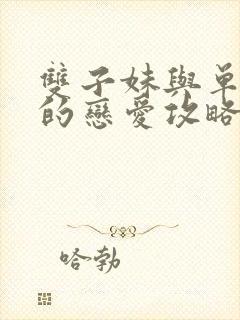 雙子妹與單
的戀愛攻略
哈勃